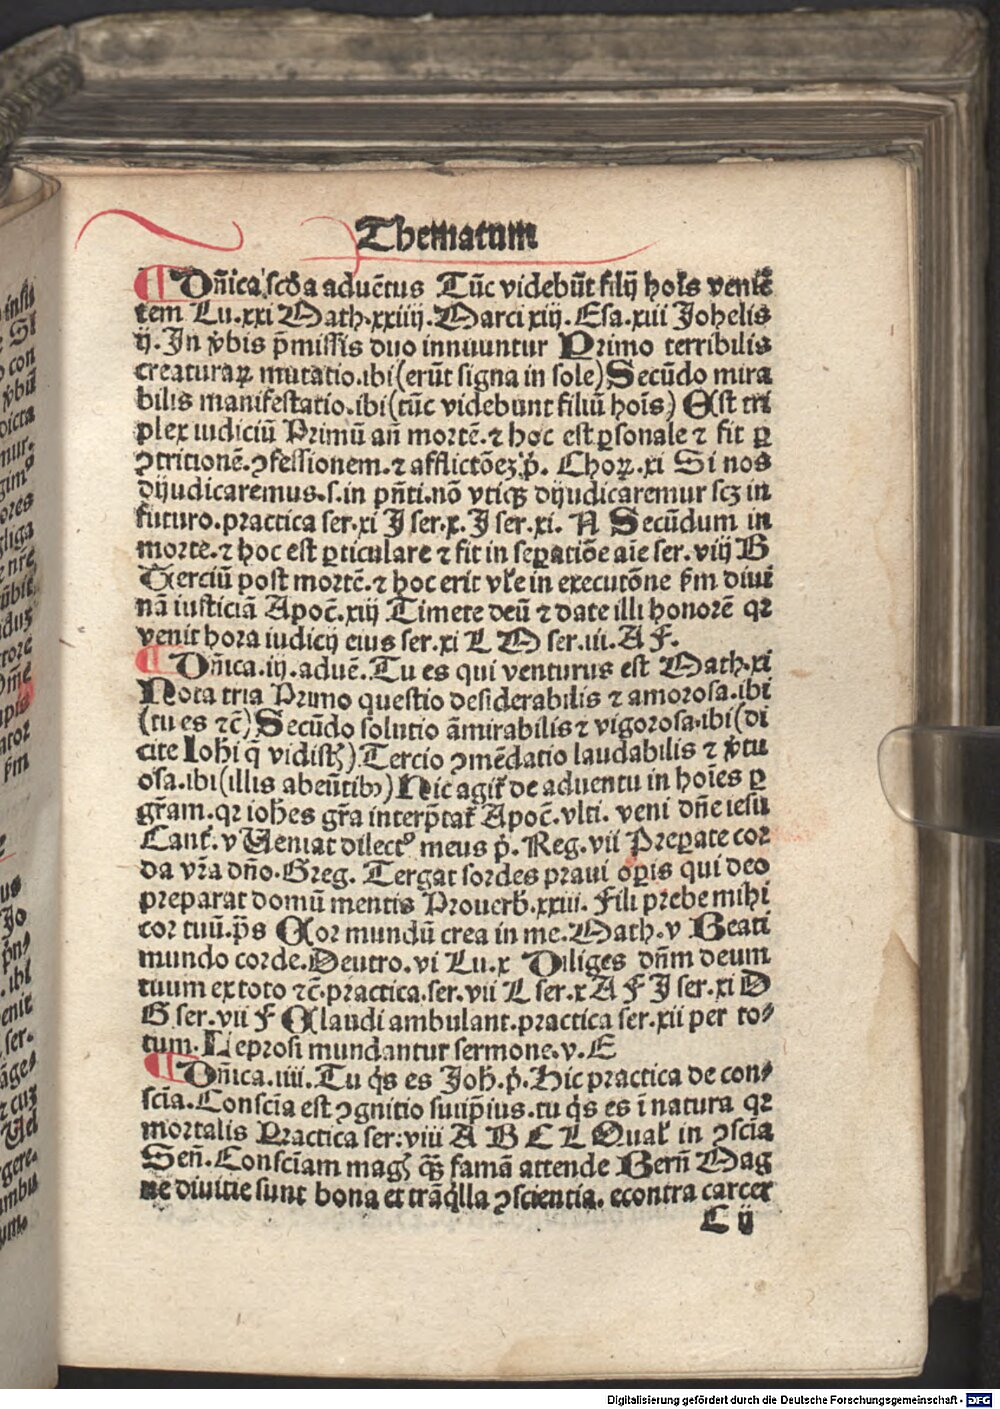 Thematum
¶ Dn̄ica scd̓a aduētus Tūc videbūt filij hoīs veniē
tem Lu.xxi Math.xxiiij.Marci xiij.Esa.xiii Johelis
ij.In v̓bis p̄missis duo innuuntur Primo terribilis
creaturaꝝ mutatio.ibi(erūt signa in sole)Secūdo mira
bilis manifestatio.ibi(tūc videbunt filiū hoīs) Est tri
plex iudiciū Primū an̄ mortē.⁊ hoc est ꝑsonale ⁊ fit ꝑ
ꝯtritionē.ꝯfessionem.⁊ afflictōeꝫ.p̓. Choꝝ.xi Si nos
dijudicaremus.s.in pn̄ti.nō vtiqꝫ dijudicaremur scꝫ in
futuro.practica ser.xi J ser.x.J ser.xi. N Secūdum in
morte.⁊ hoc est ꝑticulare ⁊ fit in seꝑatiōe aīe ser.viij B
Terciū post mortē.⁊ hoc erit vl̓e in executōne ẜm diui
nā iusticiā Apoc̄.xiij Timete deū ⁊ date illi honorē qꝛ
venit hora iudicij eius ser.xi L O ser.iii.A F.
¶ Dn̄ica.iij.aduē.Tu es qui venturus est Math.xi
Nota tria Primo questio desiderabilis ⁊ amorosa.ibi
(tu es ⁊c̄)Secūdo solutio āmirabilis ⁊ vigorosa.ibi(di
cite Ioh̄i q̄ vidistꝭ)Tercio ꝯmēdatio laudabilis ⁊ v̓tu
osa.ibi(illis abeūtibꝫ)Hic agit̓ de aduentu in hoīes ꝑ
gr̄am.qꝛ ioh̄es gr̄a interp̄tat̓ Apoc̄.vlti. veni dn̄e iesu
Cant̓.v Veniat dilectꝰ meus p̓. Reg.vii Preꝑate cor
da vr̄a dn̄o.Greg. Tergat sordes praui oꝑis qui deo
preparat domū mentis Prouerb̓.xxiii. Fili prebe mihi
cor tuū.p̄s Cor mundū crea in me.Math.v Beati
mundo corde.Deutro.vi Lu.x Diliges dn̄m deum
tuum ex toto ⁊c̄.practica.ser.vii L ser.x A F J ser.xi D
G ser.vii F Claudi ambulant.practica ser.xii per to⸗
tum.Leprosi mundantur sermone.v.E
¶ Dn̄ica.iiii.Tu q̓s es Joh.p̓.Hic practica de con⸗
scīa.Conscīa est ꝯgnitio suiip̄ius.tu q̓s es ī natura qꝛ
mortalis Practica ser.viii A B C L Qual̓ in ꝯscīa
Sen̄.Conscīam magꝭ qꝫ famā attende Bern̄ Mag
ne diuitie sunt bona et trāq̓lla ꝯscientia. econtra carcer
C ij
Digitalisierung gefördert durch die Deutsche Forschungsgemeinschaft - DFG